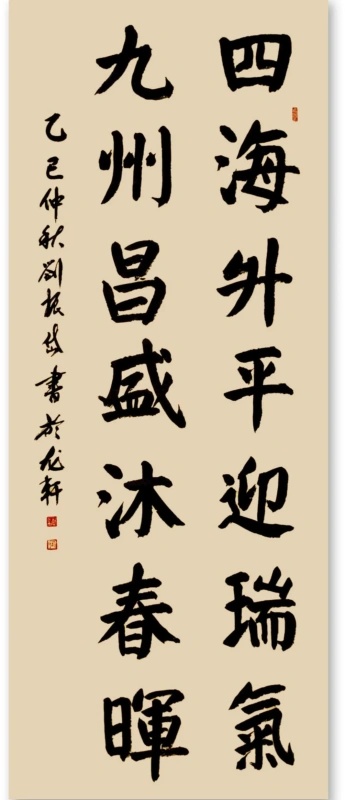 四海升平迎瑞氣
九州昌盛沐春暉
乙巳仲秋劉振岱書於龙轩